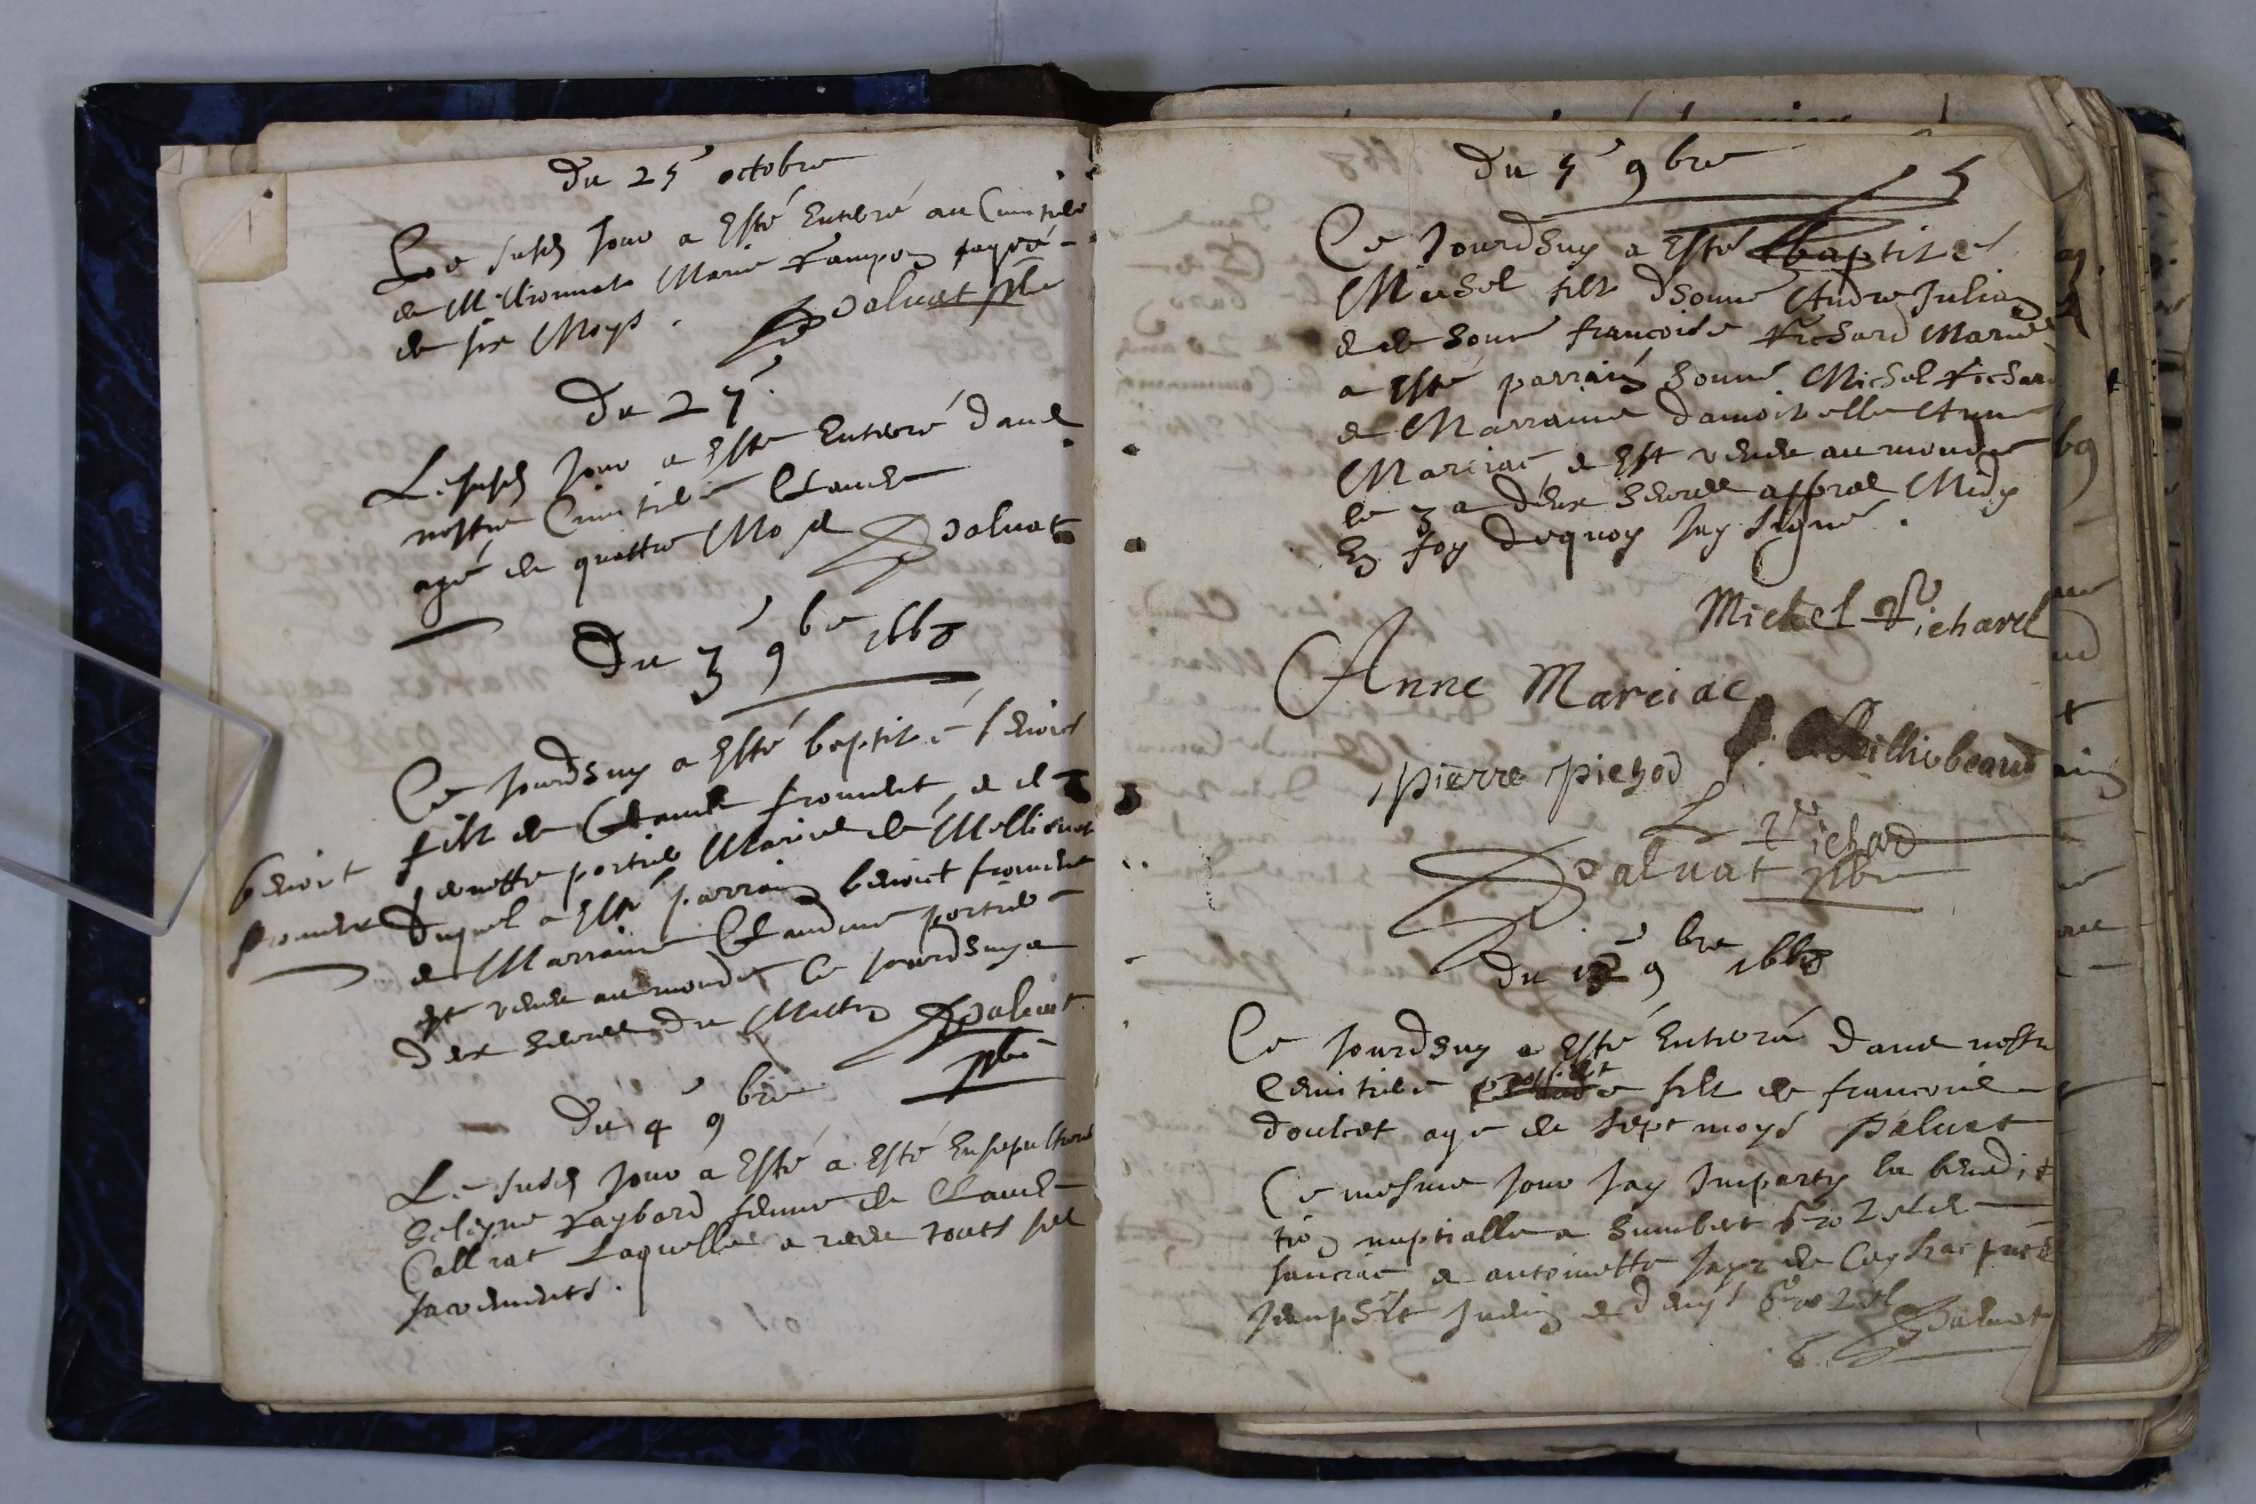 Du 25e octobre
Le susd jour a esté enterré au Cimitiere
de Millionnats Marie Rampon
de six Moys. Paluat pbre
Du 27e
Le susd jour a esté enterré dans
nostre Cimitiere Claude
agé de quattre Moys Paluat
Du 3e 9bre 1668
Ce jourdhuy a esté baptisé benoict
filz de Claude froment et de
pernette portier Mariés de Millionat
benoict
froment
duquel a esté parrain benoict froment
et Marraine Claudine portier
et venu au monde ce jourdhuy a
dix heures du Matin Paluat
pbre
Du 4e 9bre
Le susd jour a esté a esté ensepulturé
heleyne Raybard femme de Claude
Collrat Laquelle a receu touts ses
sacrements.
Du 5e 9bre
Ce jourdhuy a esté baptisé
Michel filz dhonne Andre Julien
et de honne francoise Richard Mariés
a esté parrain honne Michel Richard
et Marraine damoiselle Anne
Marciac et est venu au monde
le 3 a deux heures appres Midy
En foy dequoy jay signé.
Michel Richard
Anne Marciac
pierre pichod
Richard
Paluat pbre
Du 9bre 1668
Ce jourdhuy a esté enterré dans nostre
Cemitiere filz de francois
doulcet agé de sept moys Paluat
Ce mesme jour jay imparty la benedic
tion nuptialle a humbert de
et antoinette de
et denys Paluat